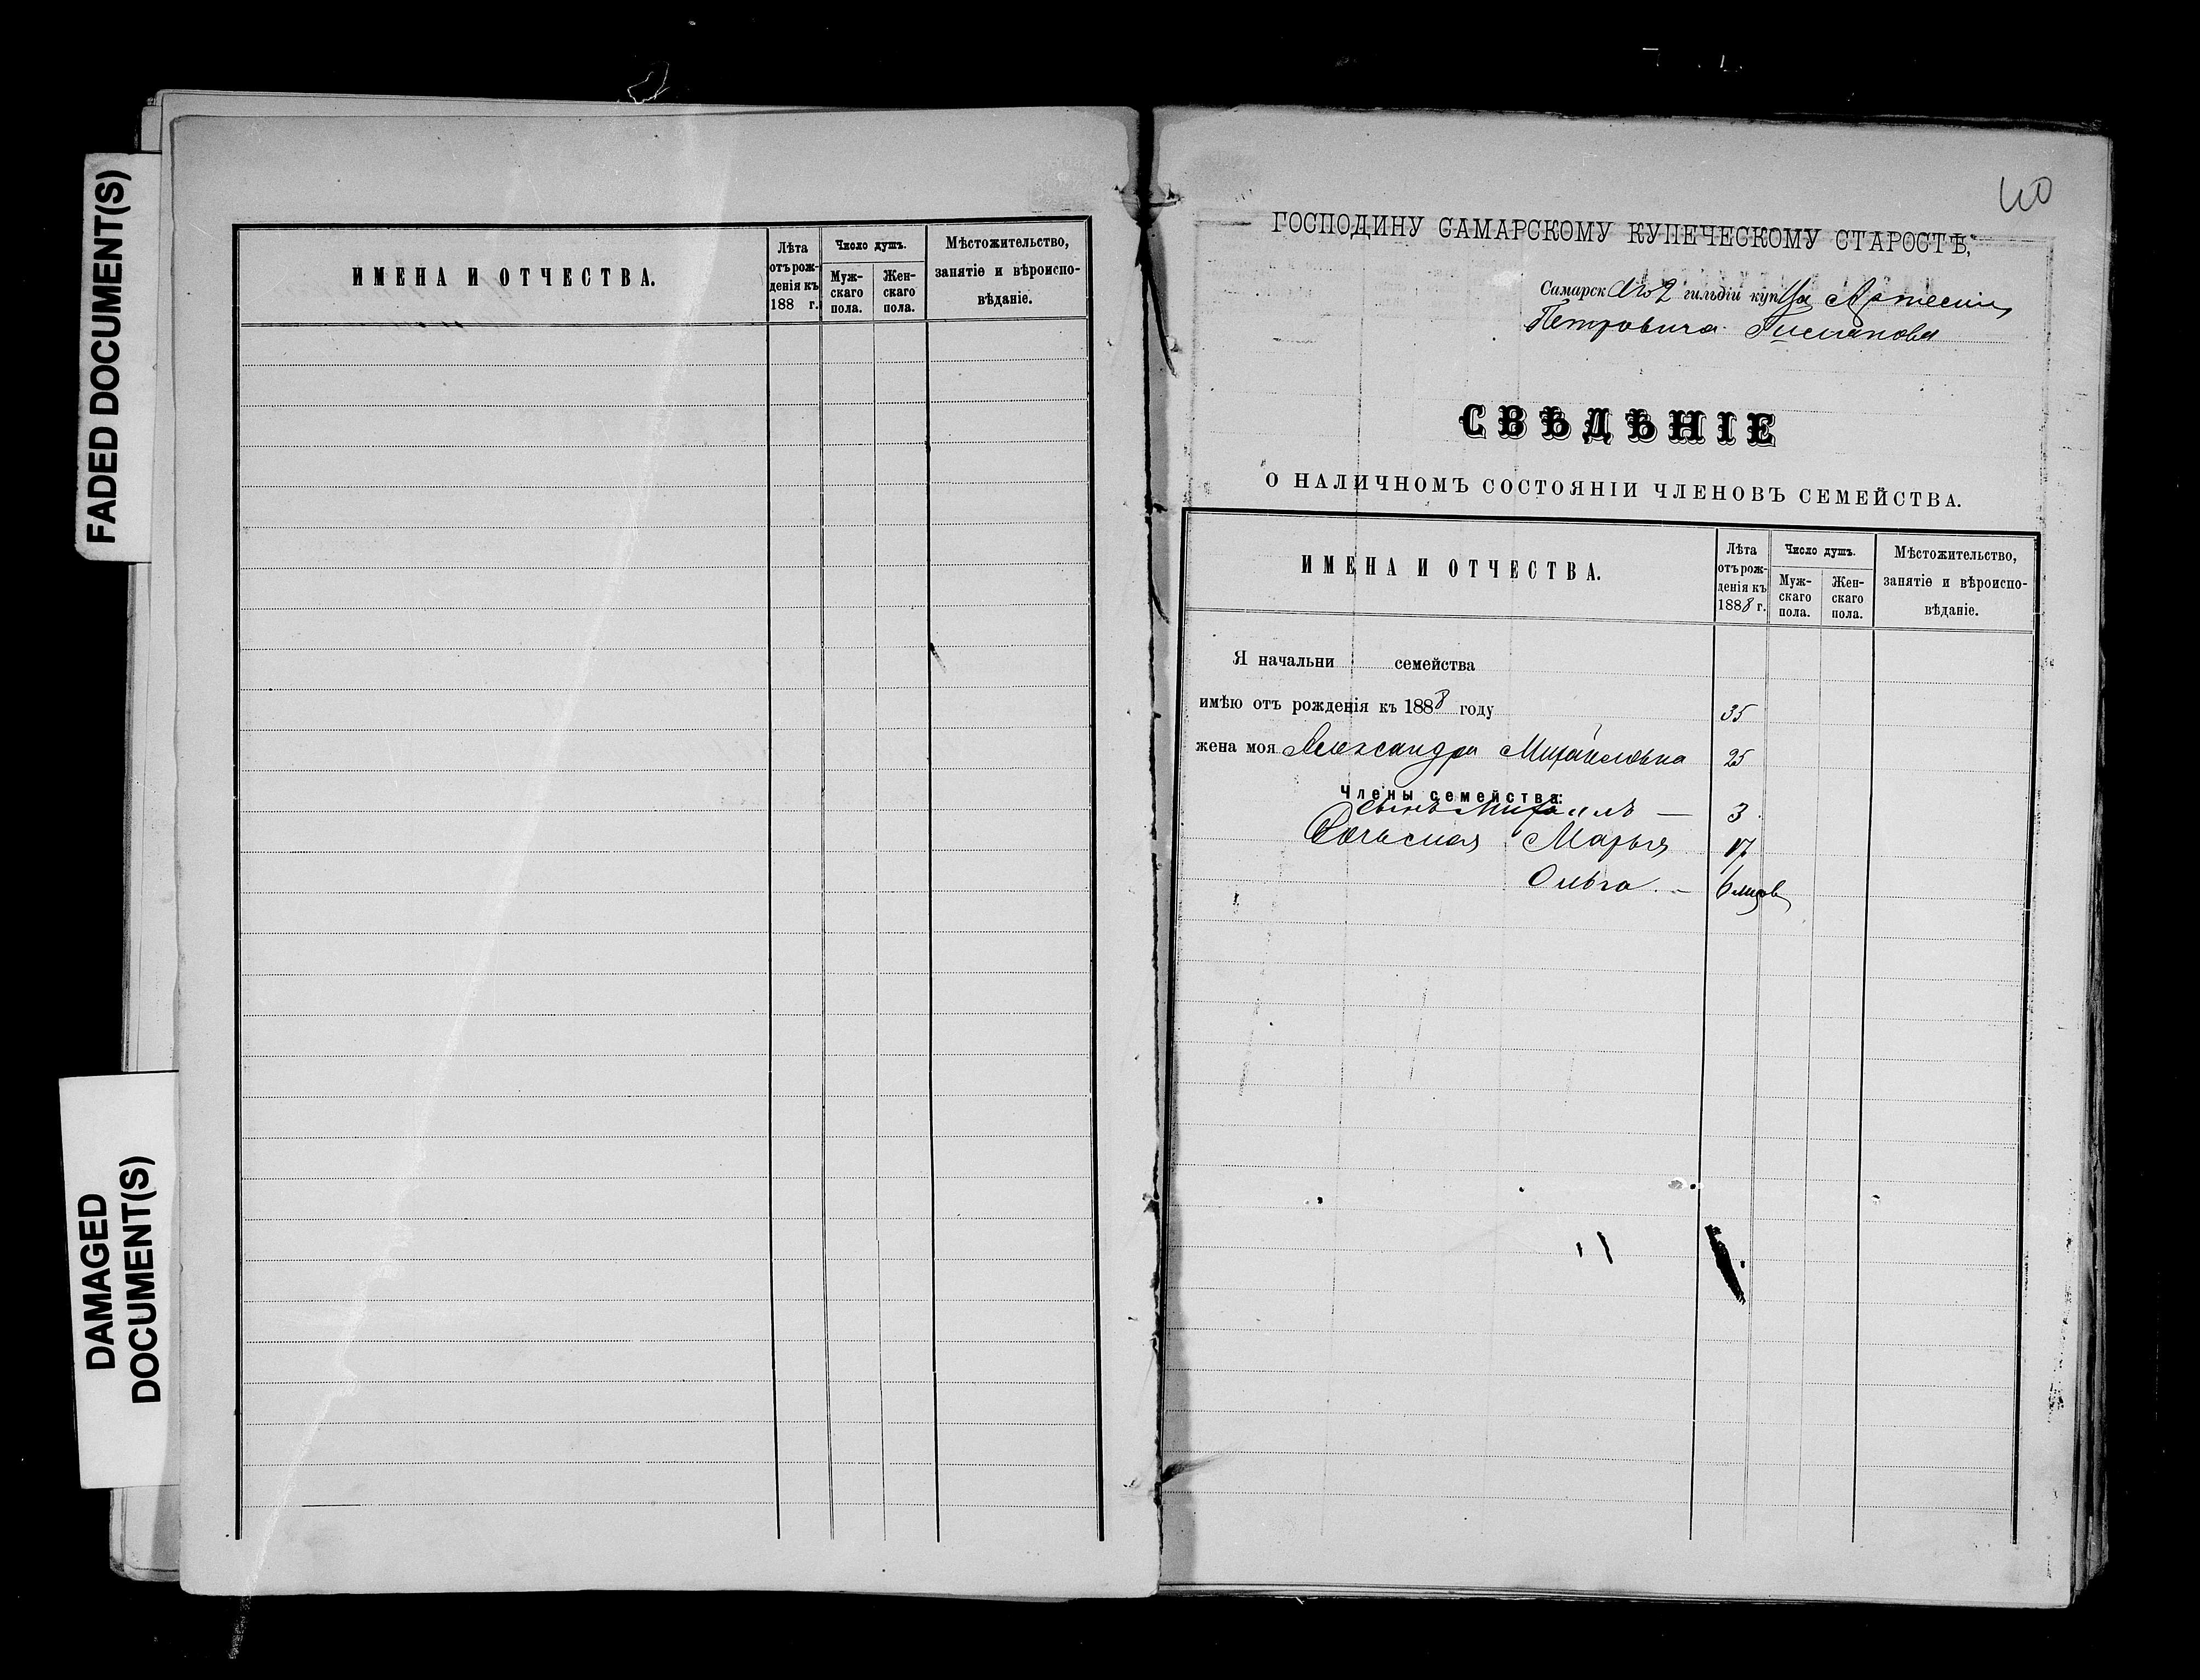 FADED DOCUMENT(S)
DAMAGED
DOCUMENT(S)
ИМЕНА И ОТЧЕСТВА.
Лѣта
отъ рож-
денія къ
188 г.
Число душъ.
Муж-
скаго
пола.
Жен-
скаго
пола.
Мѣстожительство,
занятіе и вѣроиспо-
вѣданіе.
40
ГОСПОДИНУ САМАРСКОМУ КУПЕЧЕСКОМУ СТАРОСТѢ,
Самарскаго 2 гильдіи купца
Петровича
СВѢДѢНІЕ
О НАЛИЧНОМЪ СОСТОЯНІИ ЧЛЕНОВЪ СЕМЕЙСТВА.
ИМЕНА И ОТЧЕСТВА.
Лѣта
отъ рож-
денія къ
1888 г.
Число душъ.
Муж-
скаго
пола.
Жен-
скаго
пола.
Мѣстожительство,
занятіе и вѣроиспо-
вѣданіе.
Я начальни семейства
имѣю отъ рожденія къ 1888 году 35
жена моя Александра Михайловна 25
Члены семейства:
сынъ Михаилъ — 3
Марья
Ольга — 6